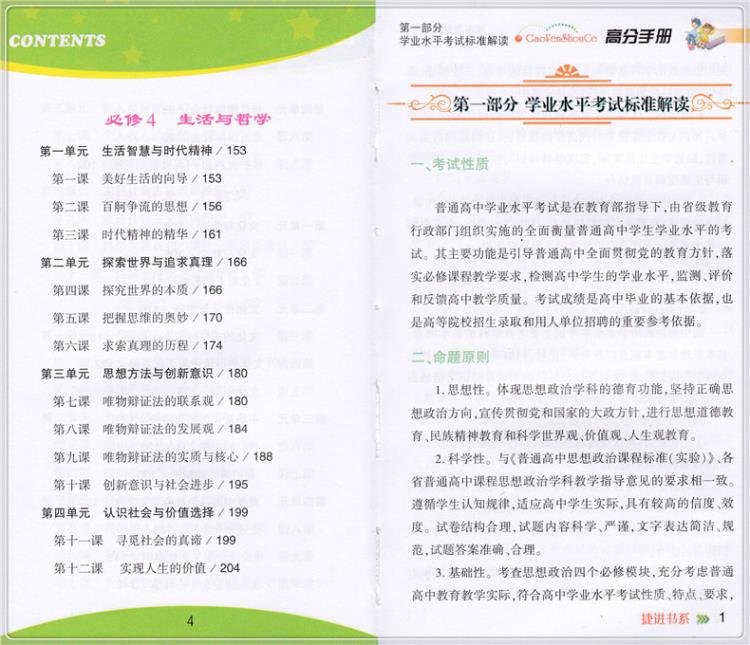 CONTENTS
必修4 生活与哲学
第一单元 生活智慧与时代精神 / 153
第一课 美好生活的向导 / 153
第二课 百舸争流的思想 / 156
第三课 时代精神的精华 / 161
第二单元 探索世界与追求真理 / 166
第四课 探究世界的本质 / 166
第五课 把握思维的奥妙 / 170
第六课 求索真理的历程 / 174
第三单元 思想方法与创新意识 / 180
第七课 唯物辩证法的联系观 / 180
第八课 唯物辩证法的发展观 / 184
第九课 唯物辩证法的实质与核心 / 188
第十课 创新意识与社会进步 / 195
第四单元 认识社会与价值选择 / 199
第十一课 寻觅社会的真谛 / 199
第十二课 实现人生的价值 / 204
4
第一部分
学业水平考试标准解读
GaoFenShouCe
高分手册
第一部分 学业水平考试标准解读
一、考试性质
普通高中学业水平考试是在教育部指导下,由省级教育
行政部门组织实施的全面衡量普通高中学生学业水平的考
试。其主要功能是引导普通高中全面贯彻党的教育方针,落
实必修课程教学要求,检测高中学生的学业水平,监测、评价
和反馈高中教学质量。考试成绩是高中毕业的基本依据,也
是高等院校招生录取和用人单位招聘的重要参考依据。
二、命题原则
1. 思想性。体现思想政治学科的德育功能,坚持正确思
想政治方向,宣传贯彻党和国家的大政方针,进行思想道德教
育、民族精神教育和科学世界观、价值观、人生观教育。
2. 科学性。与《普通高中思想政治课程标准(实验)》、各
省普通高中课程思想政治学科教学指导意见的要求相一致。
遵循学生认知规律,适应高中学生实际,具有较高的信度、效
度。试卷结构合理,试题内容科学、严谨,文字表达简洁、规
范,试题答案准确、合理。
3. 基础性。考查思想政治四个必修模块,充分考虑普通
高中教育教学实际,符合高中学业水平考试性质、特点、要求,
捷进书系 1